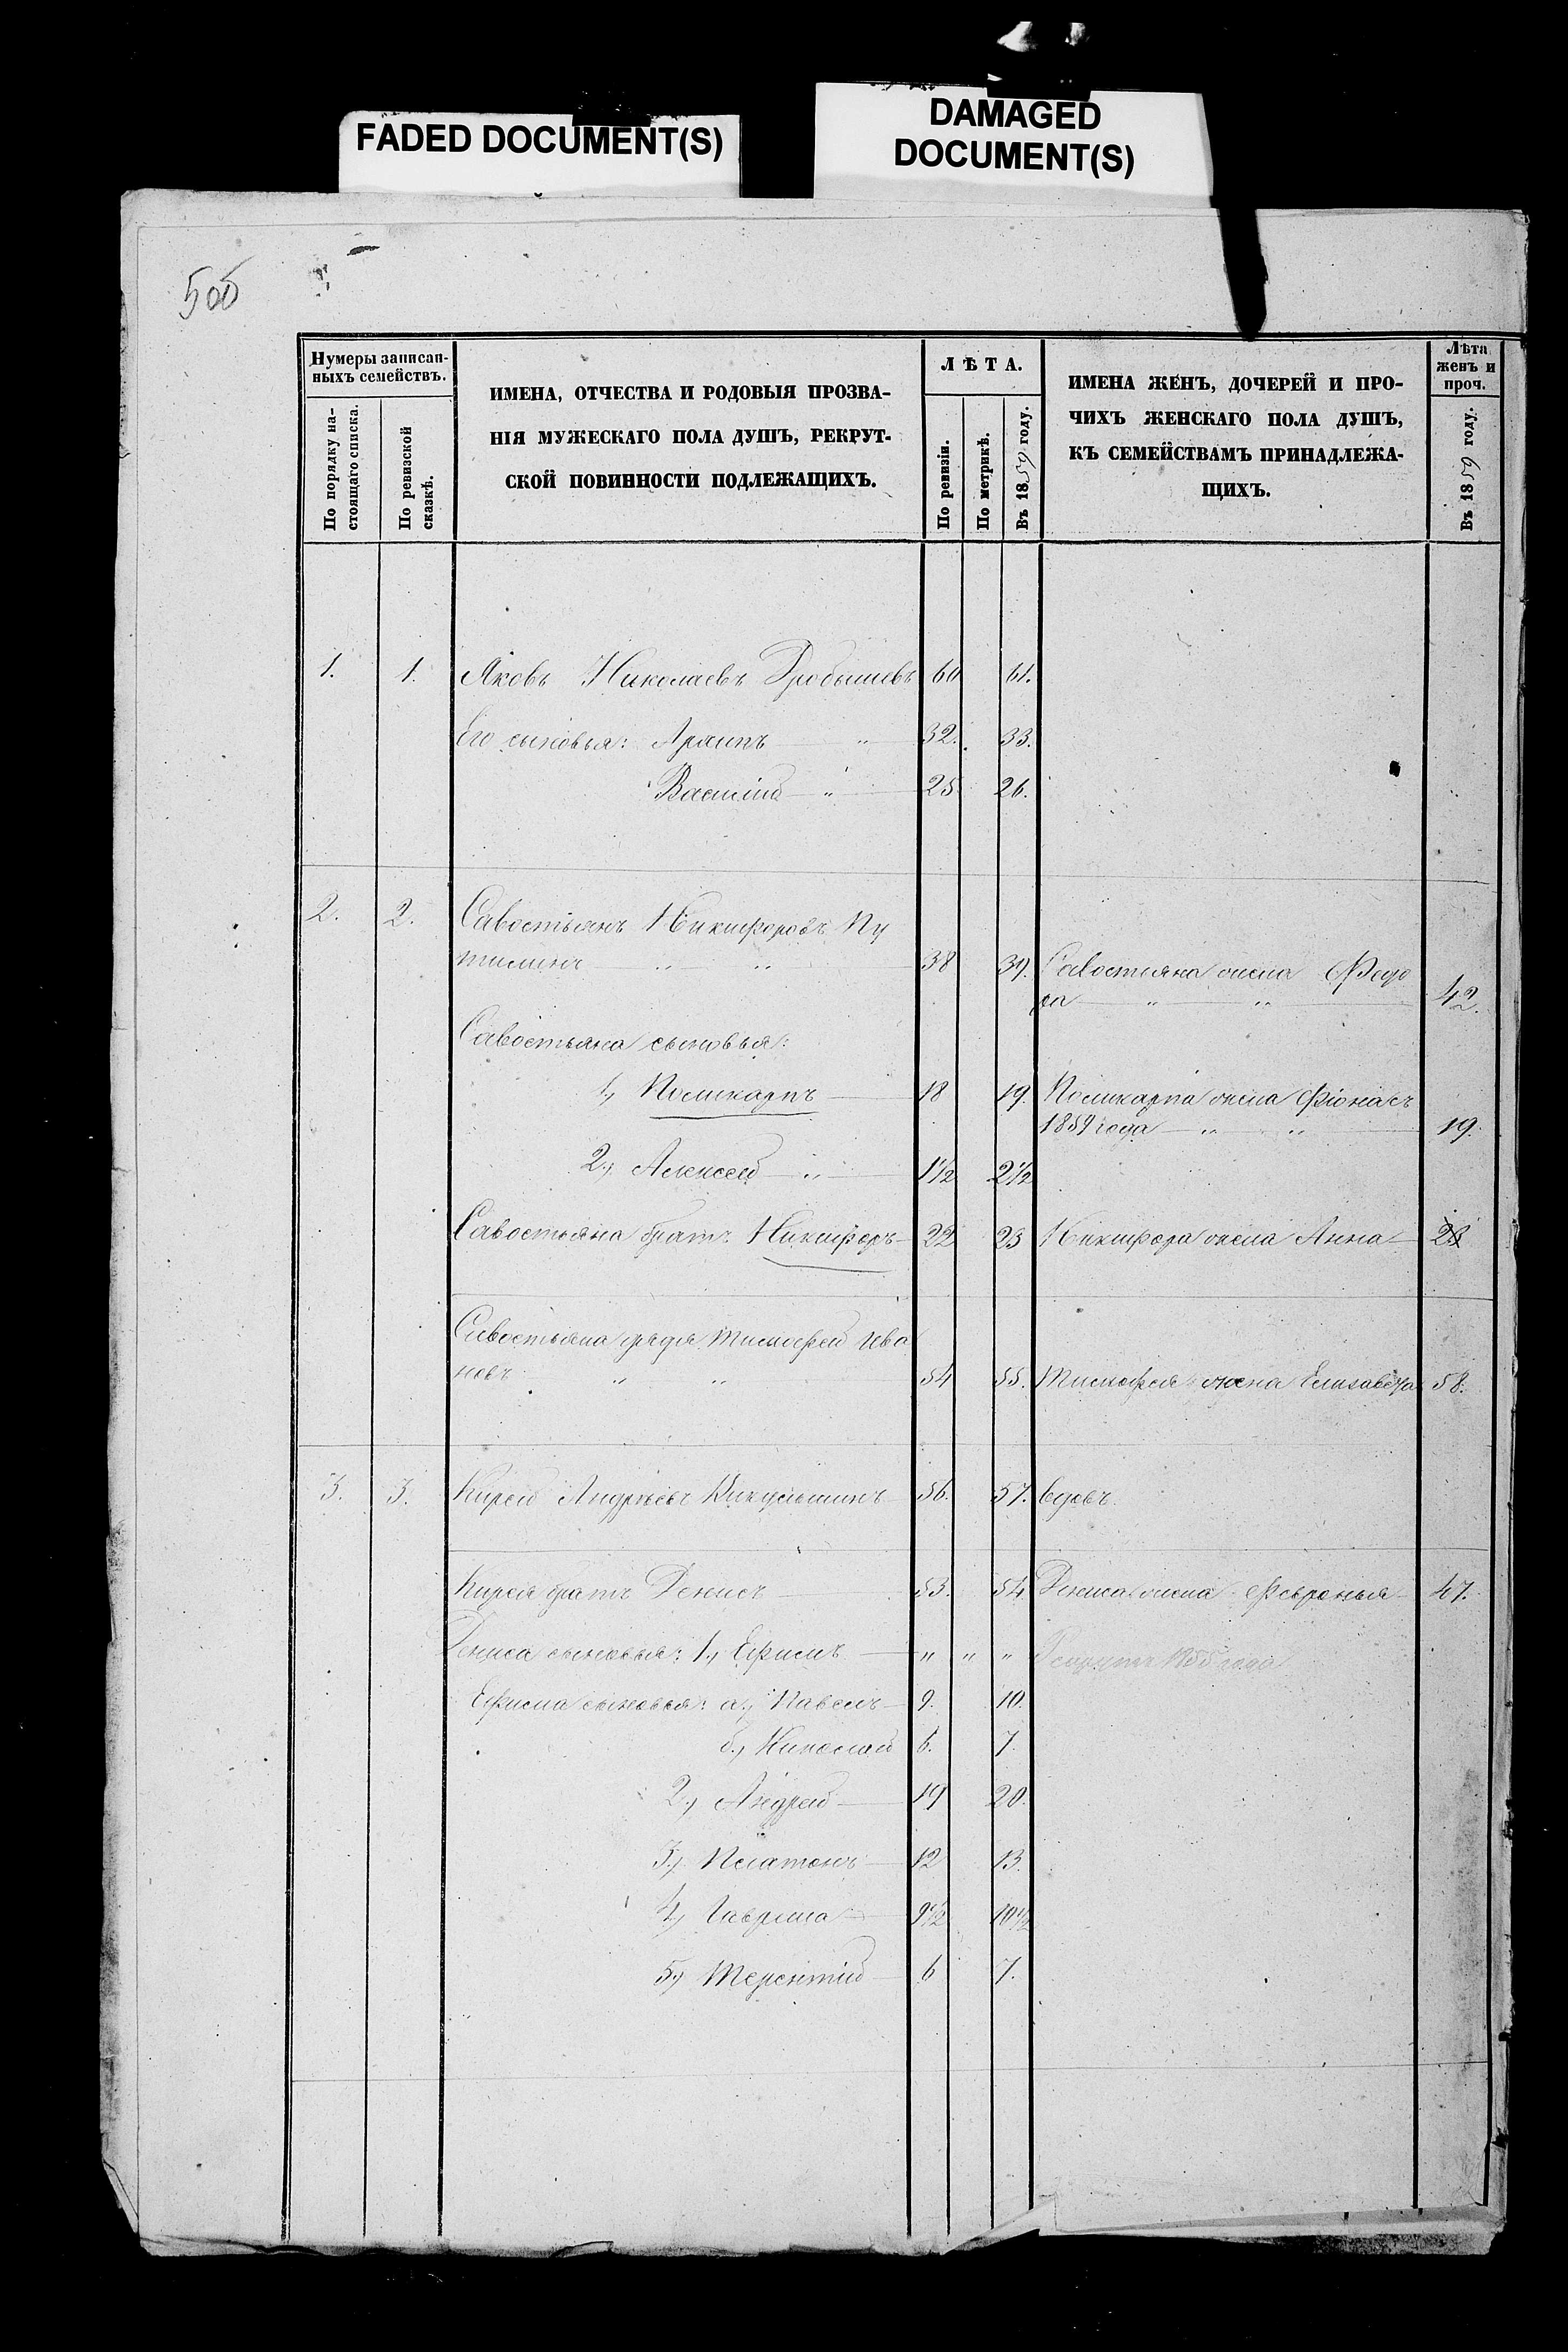 FADED DOCUMENT(S)
DAMAGED
DOCUMENT(S)
Нумеры записан-
ныхъ семействъ.
По порядку на-
стоящаго списка.
По ревизской
сказкѣ.
ИМЕНА, ОТЧЕСТВА И РОДОВЫЯ ПРОЗВА-
НІЯ МУЖЕСКАГО ПОЛА ДУШЪ, РЕКРУТ-
СКОЙ ПОВИННОСТИ ПОДЛЕЖАЩИХЪ.
ЛѢТА.
По ревизіи.
По метрикѣ.
Въ 1859 году.
ИМЕНА ЖЕНЪ, ДОЧЕРЕЙ И ПРО-
ЧИХЪ ЖЕНСКАГО ПОЛА ДУШЪ,
КЪ СЕМЕЙСТВАМЪ ПРИНАДЛЕЖА-
ЩИХЪ.
Лѣта
женъ и
проч.
Въ 1859 году.
1. 1. Яковъ Николаевъ Дробышевъ 60 61.
Его сыновья: Архипъ " 32. 33.
Василій " 25 26.
2. 2. Савостьянъ Никифоровъ Пу
тилинъ " " 38 39. Савостьяна жена Федо
ра " " 42.
Савостьяна сыновья:
1, Поликарпъ 18 19. Поликарпа жена Фіона съ
1859 года " " 19.
2, Алексей " 1½ 2½
Савостьяна братъ Никифоръ 22 23 Никифора жена Анна
Савостьяна дядя Тимофей Ива
новъ " " 54 55. Тимофея жена Елизавета 58.
3. 3. Кирей Андреевъ 56. 57. вдовъ.
Кирея братъ Денисъ 53. 54. Дениса жена Февронья 47.
Дениса сыновья: 1, Ефимъ " " " Рекрутъ 1855 года
Ефима сыновья: а, Павелъ 9. 10.
б, Николай 6. 7.
2, Андрей 19 20.
3, Платонъ 12 13.
4, Гаврила 9½ 10½
5, Терентій 6 7.